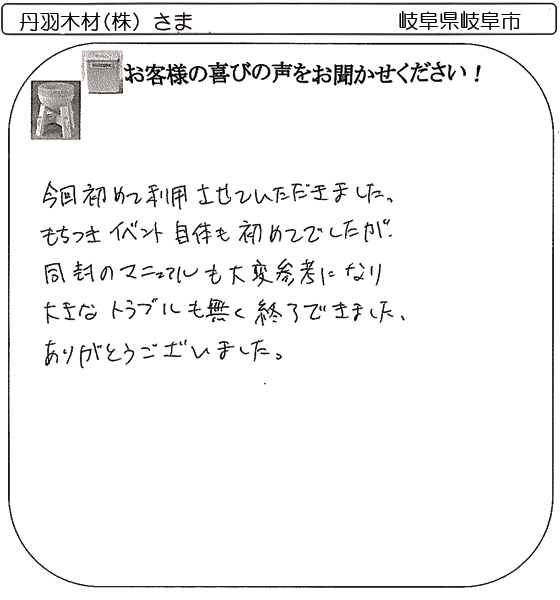 丹羽木材(株) さま 岐阜県岐阜市
お客様の喜びの声をお聞かせください!
今回初めて利用させていただきました。
もちつきイベント自体も初めてでしたが、
同封のマニュアルも大変参考になり
大きなトラブルも無く終了できました、
ありがとうございました。